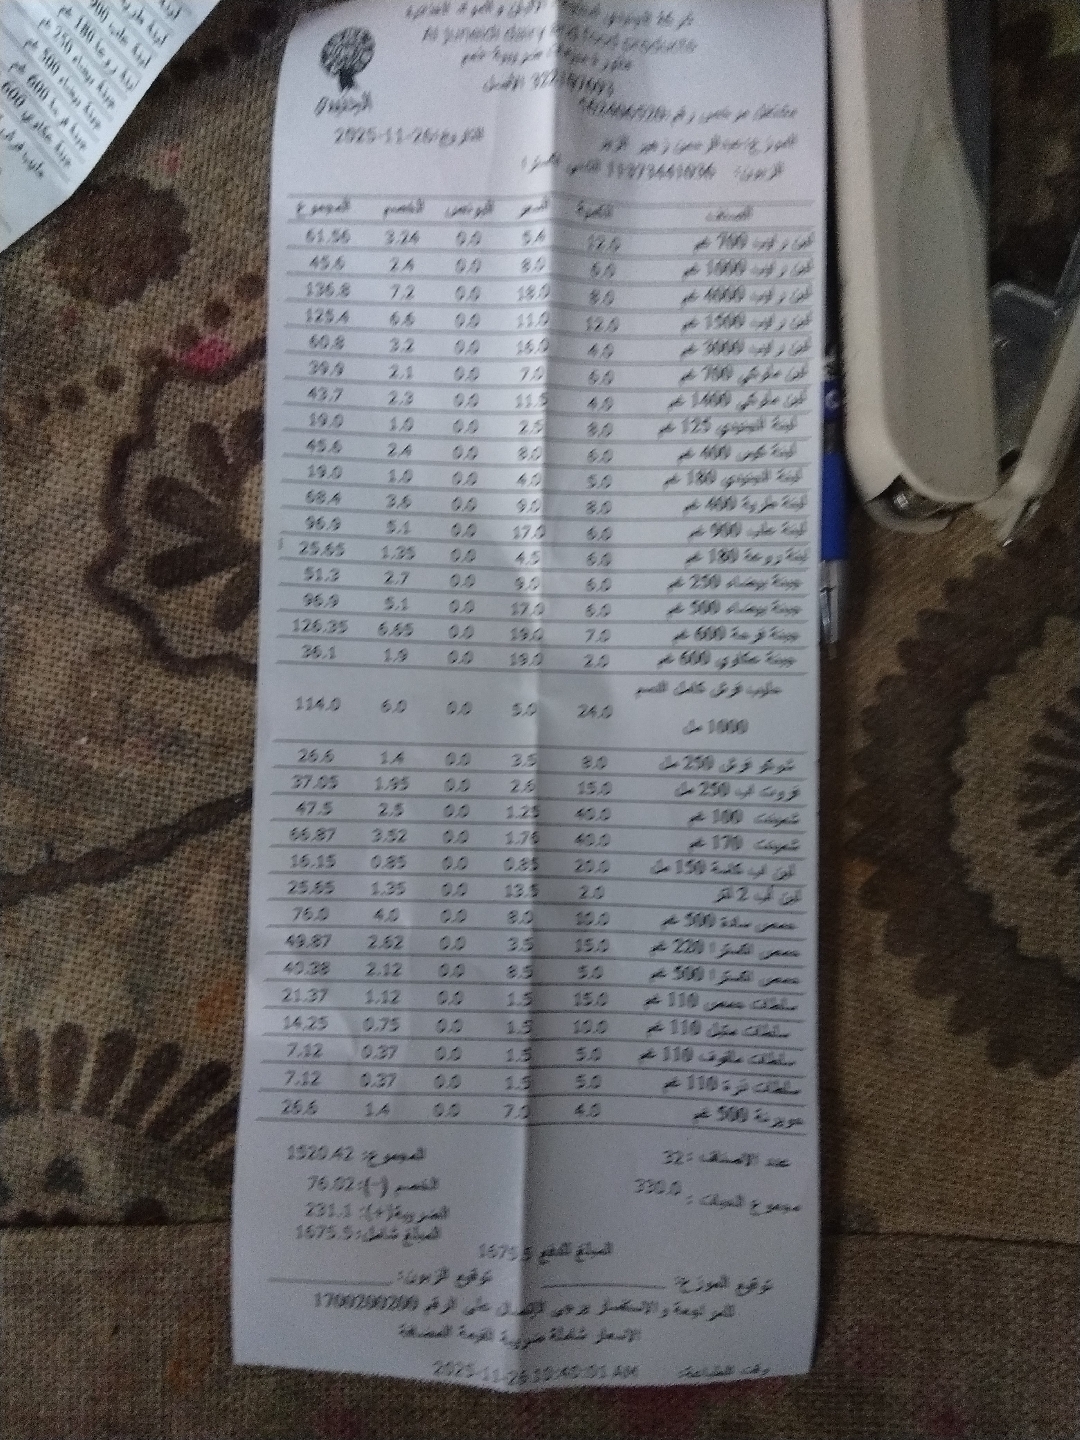 شركة الجنيدي لمنتجات الألبان و المواد الغذائية
Al Junaidi dairy and food products
فاتورة مبيعات ضريبية
الأصل
الجنيدي
مشتغل مرخص رقم:
التاريخ: 2025-11-26
الموزع:
الزبون: 11273441036
الصنف الكمية السعر البونص الخصم المجموع
لبن رايب 700 غم 12.0 5.4 0.0 3.24 61.56
لبن رايب 1000 غم 6.0 8.0 0.0 2.4 45.6
لبن رايب 4000 غم 8.0 18.0 0.0 7.2 136.8
لبن رايب 1500 غم 12.0 11.0 0.0 6.6 125.4
لبن رايب 3000 غم 4.0 16.0 0.0 3.2 60.8
لبن متوكي 700 غم 6.0 7.0 0.0 2.1 39.9
لبن 1400 غم 4.0 11.5 0.0 2.3 43.7
لبنة الجنيدي 125 غم 8.0 2.5 0.0 1.0 19.0
لبنة كيس 400 غم 6.0 8.0 0.0 2.4 45.6
لبنة الجنيدي 180 غم 5.0 4.0 0.0 1.0 19.0
لبنة طرية 400 غم 8.0 9.0 0.0 3.6 68.4
لبنة علب 900 غم 6.0 17.0 0.0 5.1 96.9
لبنة روعة 180 غم 6.0 4.5 0.0 1.35 25.65
جبنة بيضاء 250 غم 6.0 9.0 0.0 2.7 51.3
جبنة بيضاء 500 غم 6.0 17.0 0.0 5.1 96.9
جبنة 600 غم 7.0 19.0 0.0 6.65 126.35
جبنة عكاوي 600 غم 2.0 19.0 0.0 1.9 36.1
حليب فرش كامل الدسم
1000 مل 24.0 5.0 0.0 6.0 114.0
شوكو فرش 250 مل 8.0 3.5 0.0 1.4 26.6
فروت اب 250 مل 15.0 2.6 0.0 1.95 37.05
شمينت 100 غم 40.0 1.25 0.0 2.5 47.5
شمينت 170 غم 40.0 1.76 0.0 3.52 66.87
لبن اب كاسة 150 مل 20.0 0.85 0.0 0.85 16.15
لبن اب 2 لتر 2.0 13.5 0.0 1.35 25.65
حمص سادة 500 غم 10.0 8.0 0.0 4.0 76.0
حمص اكسترا 220 غم 15.0 3.5 0.0 2.62 49.87
حمص اكسترا 500 غم 5.0 8.5 0.0 2.12 40.38
سلطات حمص 110 غم 15.0 1.5 0.0 1.12 21.37
سلطات متبل 110 غم 10.0 1.5 0.0 0.75 14.25
سلطات ملفوف 110 غم 5.0 1.5 0.0 0.37 7.12
سلطات ذرة 110 غم 5.0 1.5 0.0 0.37 7.12
500 غم 4.0 7.0 0.0 1.4 26.6
عدد الاصناف : 32
المجموع: 1520.42
مجموع الحبات : 330.0
الخصم (-): 76.02
الضريبة(+): 231.1
المبلغ شامل: 1675.5
المبلغ للدفع 1675.5
توقيع الموزع: توقيع الزبون:
للمراجعة والاستفسار يرجى الاتصال على الرقم 1700200200
الاسعار شاملة ضريبة القيمة المضافة
وقت الطباعة: 2025-11-26 10:40:01 AM
لبنة علب 900
لبنة روعة 180 غم
جبنة بيضاء 250 غم
جبنة بيضاء 500 غم
600 غم
جبنة عكاوي 600